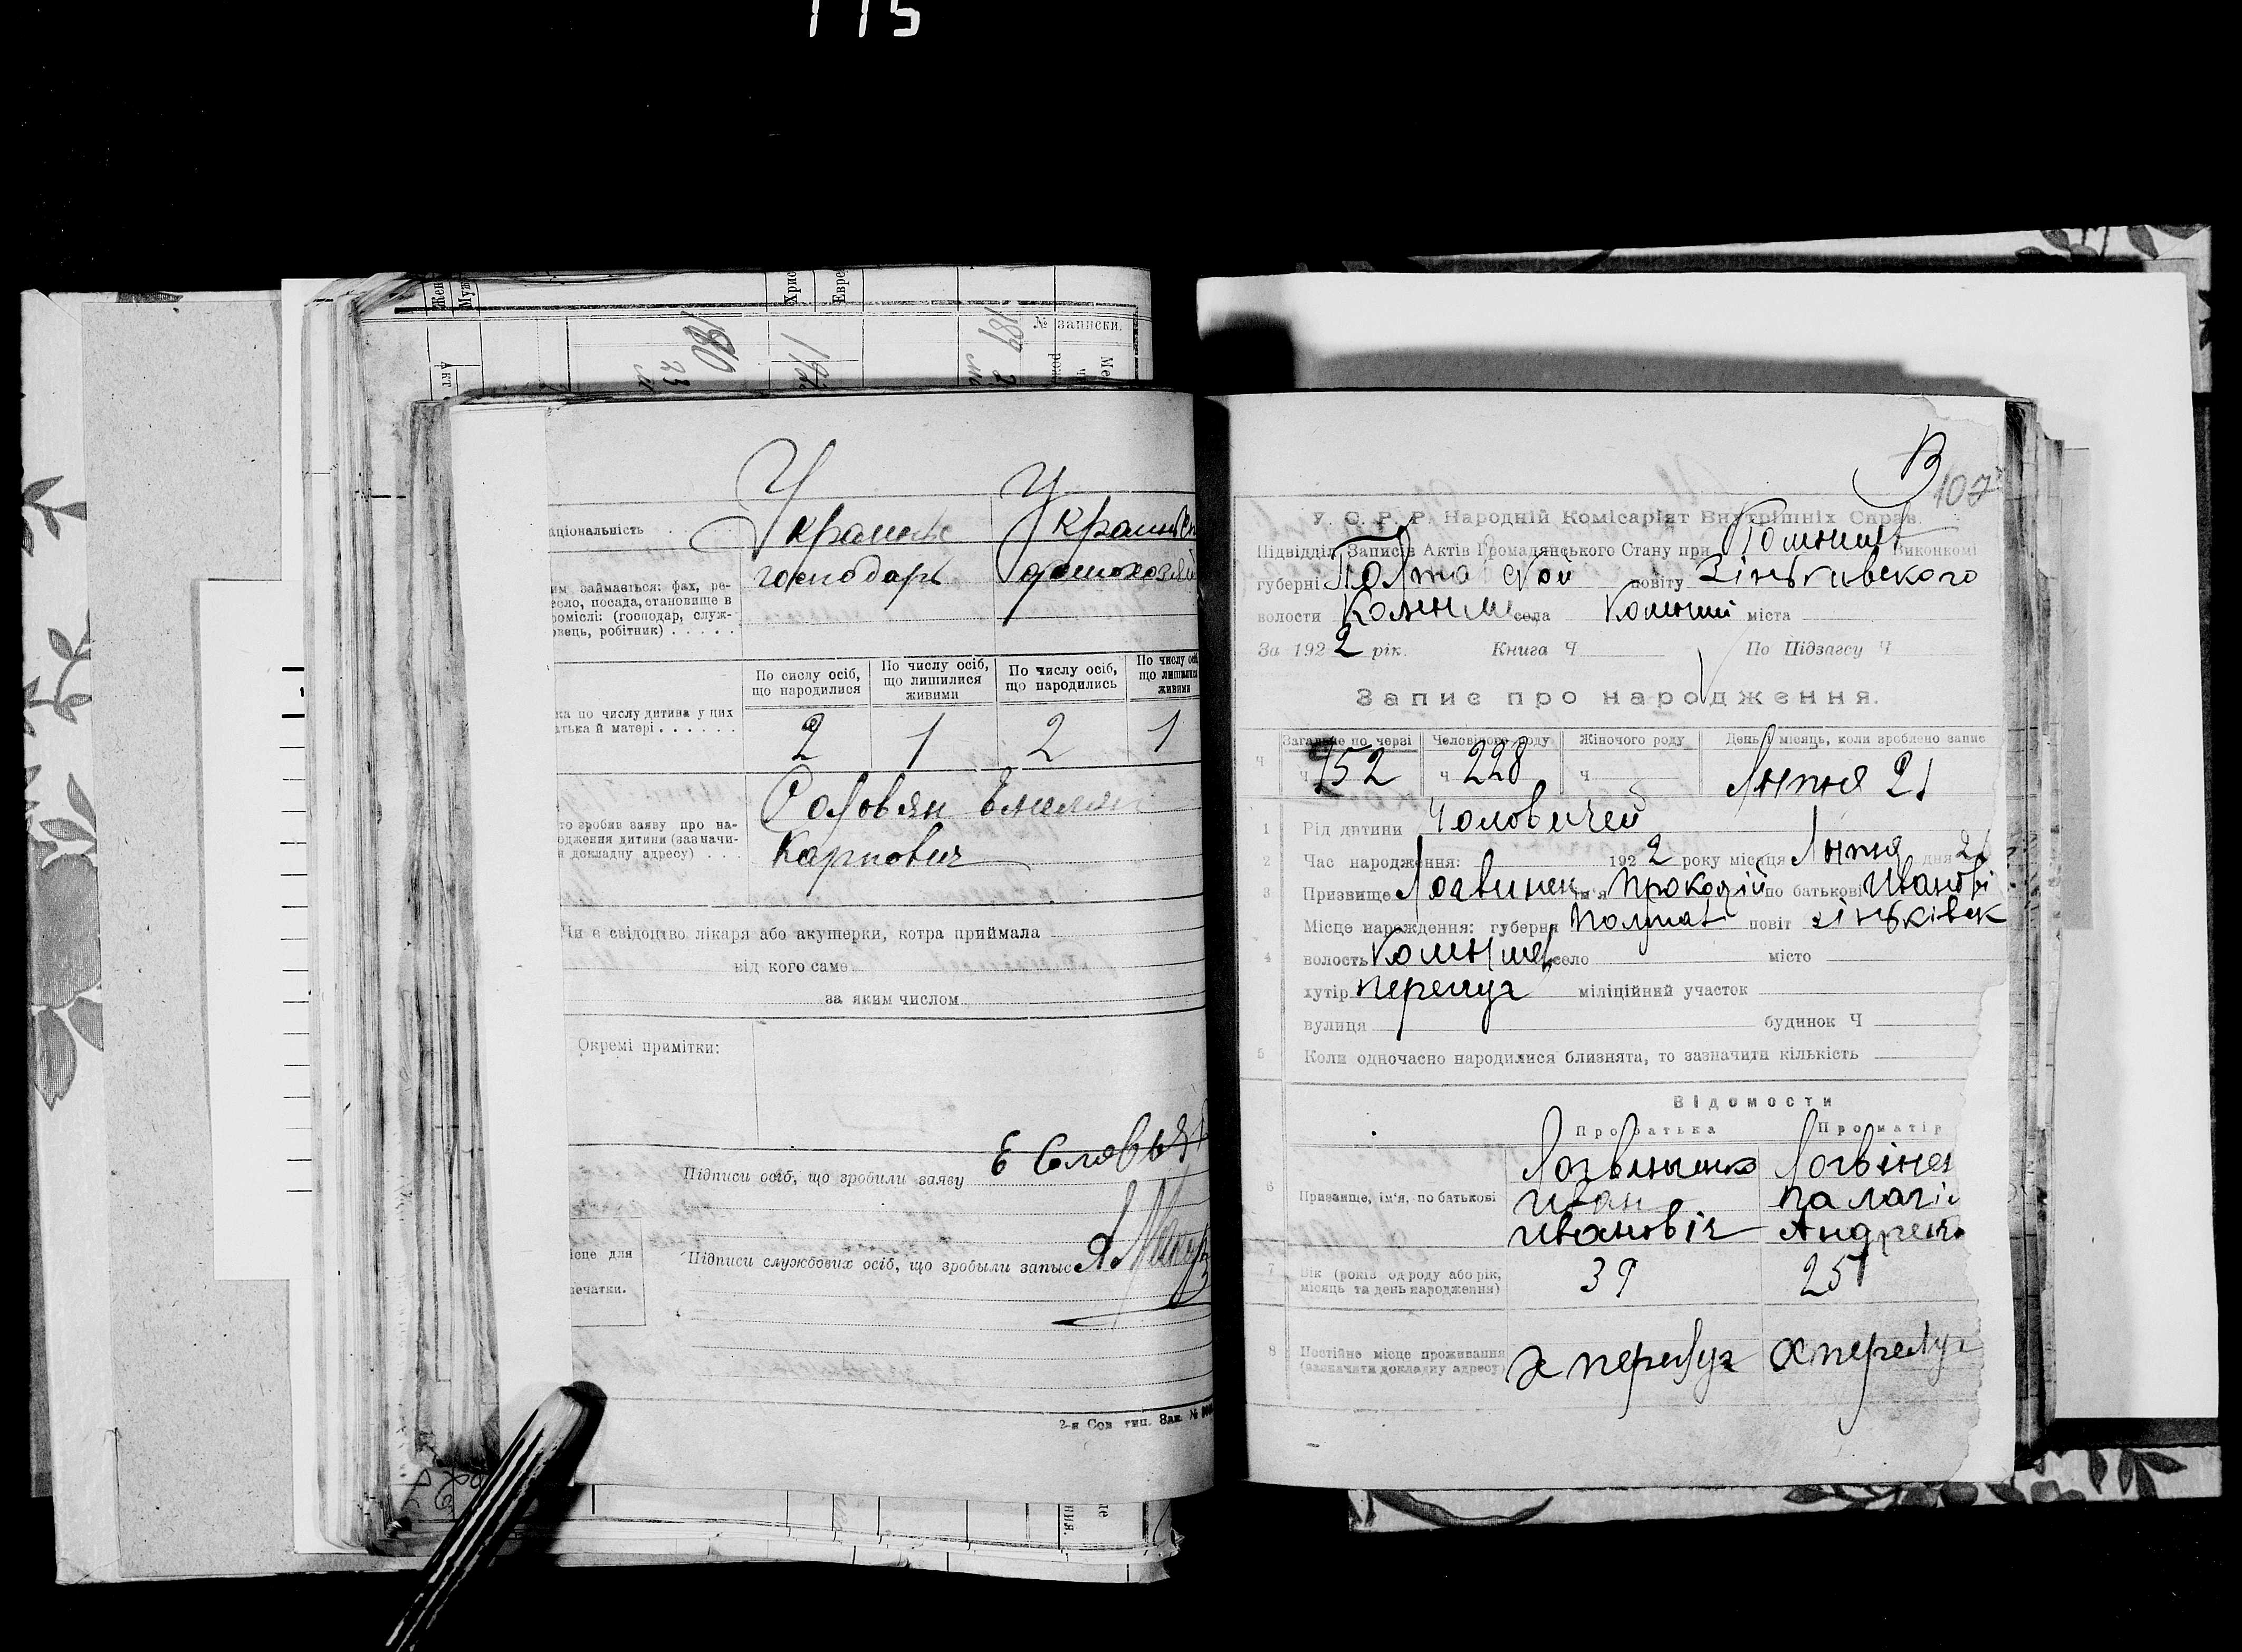 115
Жен
Муж
Хрис
Евре
№ записки.
189
180
Акт
аціональність
Украинец
господарь
домохозяй
им займається: фах, ре-
есло, посада, становище в
роміслі: (господар, служ-
овець, робітник)
По сислу осіб, що народилися
По числу осіб, що лишилися живими
По числу осіб, що народились
По числу осіб що лишилися живими
ка по числу дитина у цих
атька й матері
2 1 2 1
то зробив заяву про на-
одження дитини (зазначи-
и докладну адресу)
Соловян Емелян
Карпович
Чи є свідоцтво лікаря або акушерки, котра приймала
від кого саме
за яким числом
Окремі примітки:
Підписи осіб, що зробили заяву
Підписи службових осіб, що зробыли запыс
ісце для
печатки.
2-я Сов тип. Зак. №
В
107
У. С. Р. Р. Народній Комісаріят Внутрішніх Справ
Підвідділ Записів Актів Громадянського Стану при Комишев Виконкомі
губерні Полтавской повіту Зіньківского
волости Комиш села Комиши міста
За 1922 рік. Книга Ч По Підзагсу Ч
Запис про народження.
Загальне по черзі Человічого роду Жіночого роду День і місяць, коли зроблено запис
ч 452 ч 228 ч Липня 21
1 Рід дитини Чоловичей
2 Час народження: 1922 року місяця Липня дня 2
3 Призвище Логвинен ім'я Прокопій по батькові Иванові
Місце нарождення: губерня Полтав повіт Зіньківск
4 волость Комишев село місто
хутір Перелуг міліційний участок
вулиця будинок Ч
5 Коли одночасно народилися близнята, то зазначити кількість
Відомости
Про батька Про матір
6 Призвище, ім'я, по батькові
Логвиненко Логвінен
Иван Палагі
Ивановіч Андреев
7 Вік (років од роду або рік,
місяць та день народження)
39 25
8 Постійне місце проживання
(зазначити докладну адресу)
х перелуг х перелуг